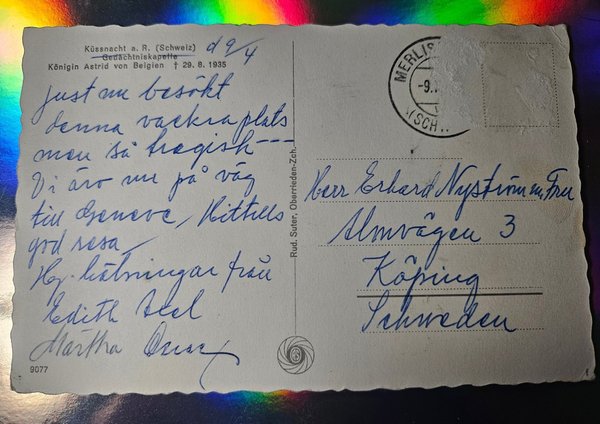 Küssnacht a. R. (Schweiz)
Gedächtniskapelle
Königin Astrid von Belgien † 29. 8. 1935
d 9/4
just nu besökt
denna vackra plats
men så tragisk ---
Vi äro nu på väg
till Geneve, Hittills
god resa
Hj. hälsningar från
Edith Axel
Märtha Oscar
9077
Rud. Suter, Oberrieden-Zch.
MERLIS
-9.
(SCH
Herr Erhard Nyström m. Fru
Almvägen 3
Köping
Schweden